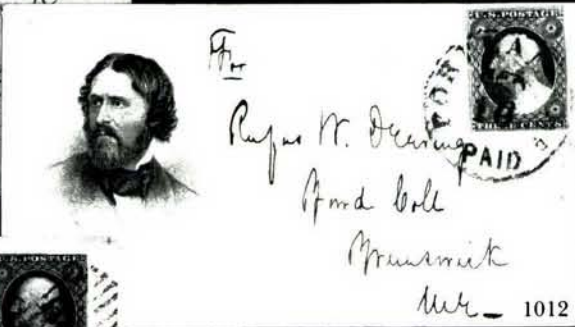 U.S. POSTAGE
THREE CENTS
PAID
Rufus W. Deering
Bowd Coll
Brunswick
Me
1012
U.S. POSTAGE